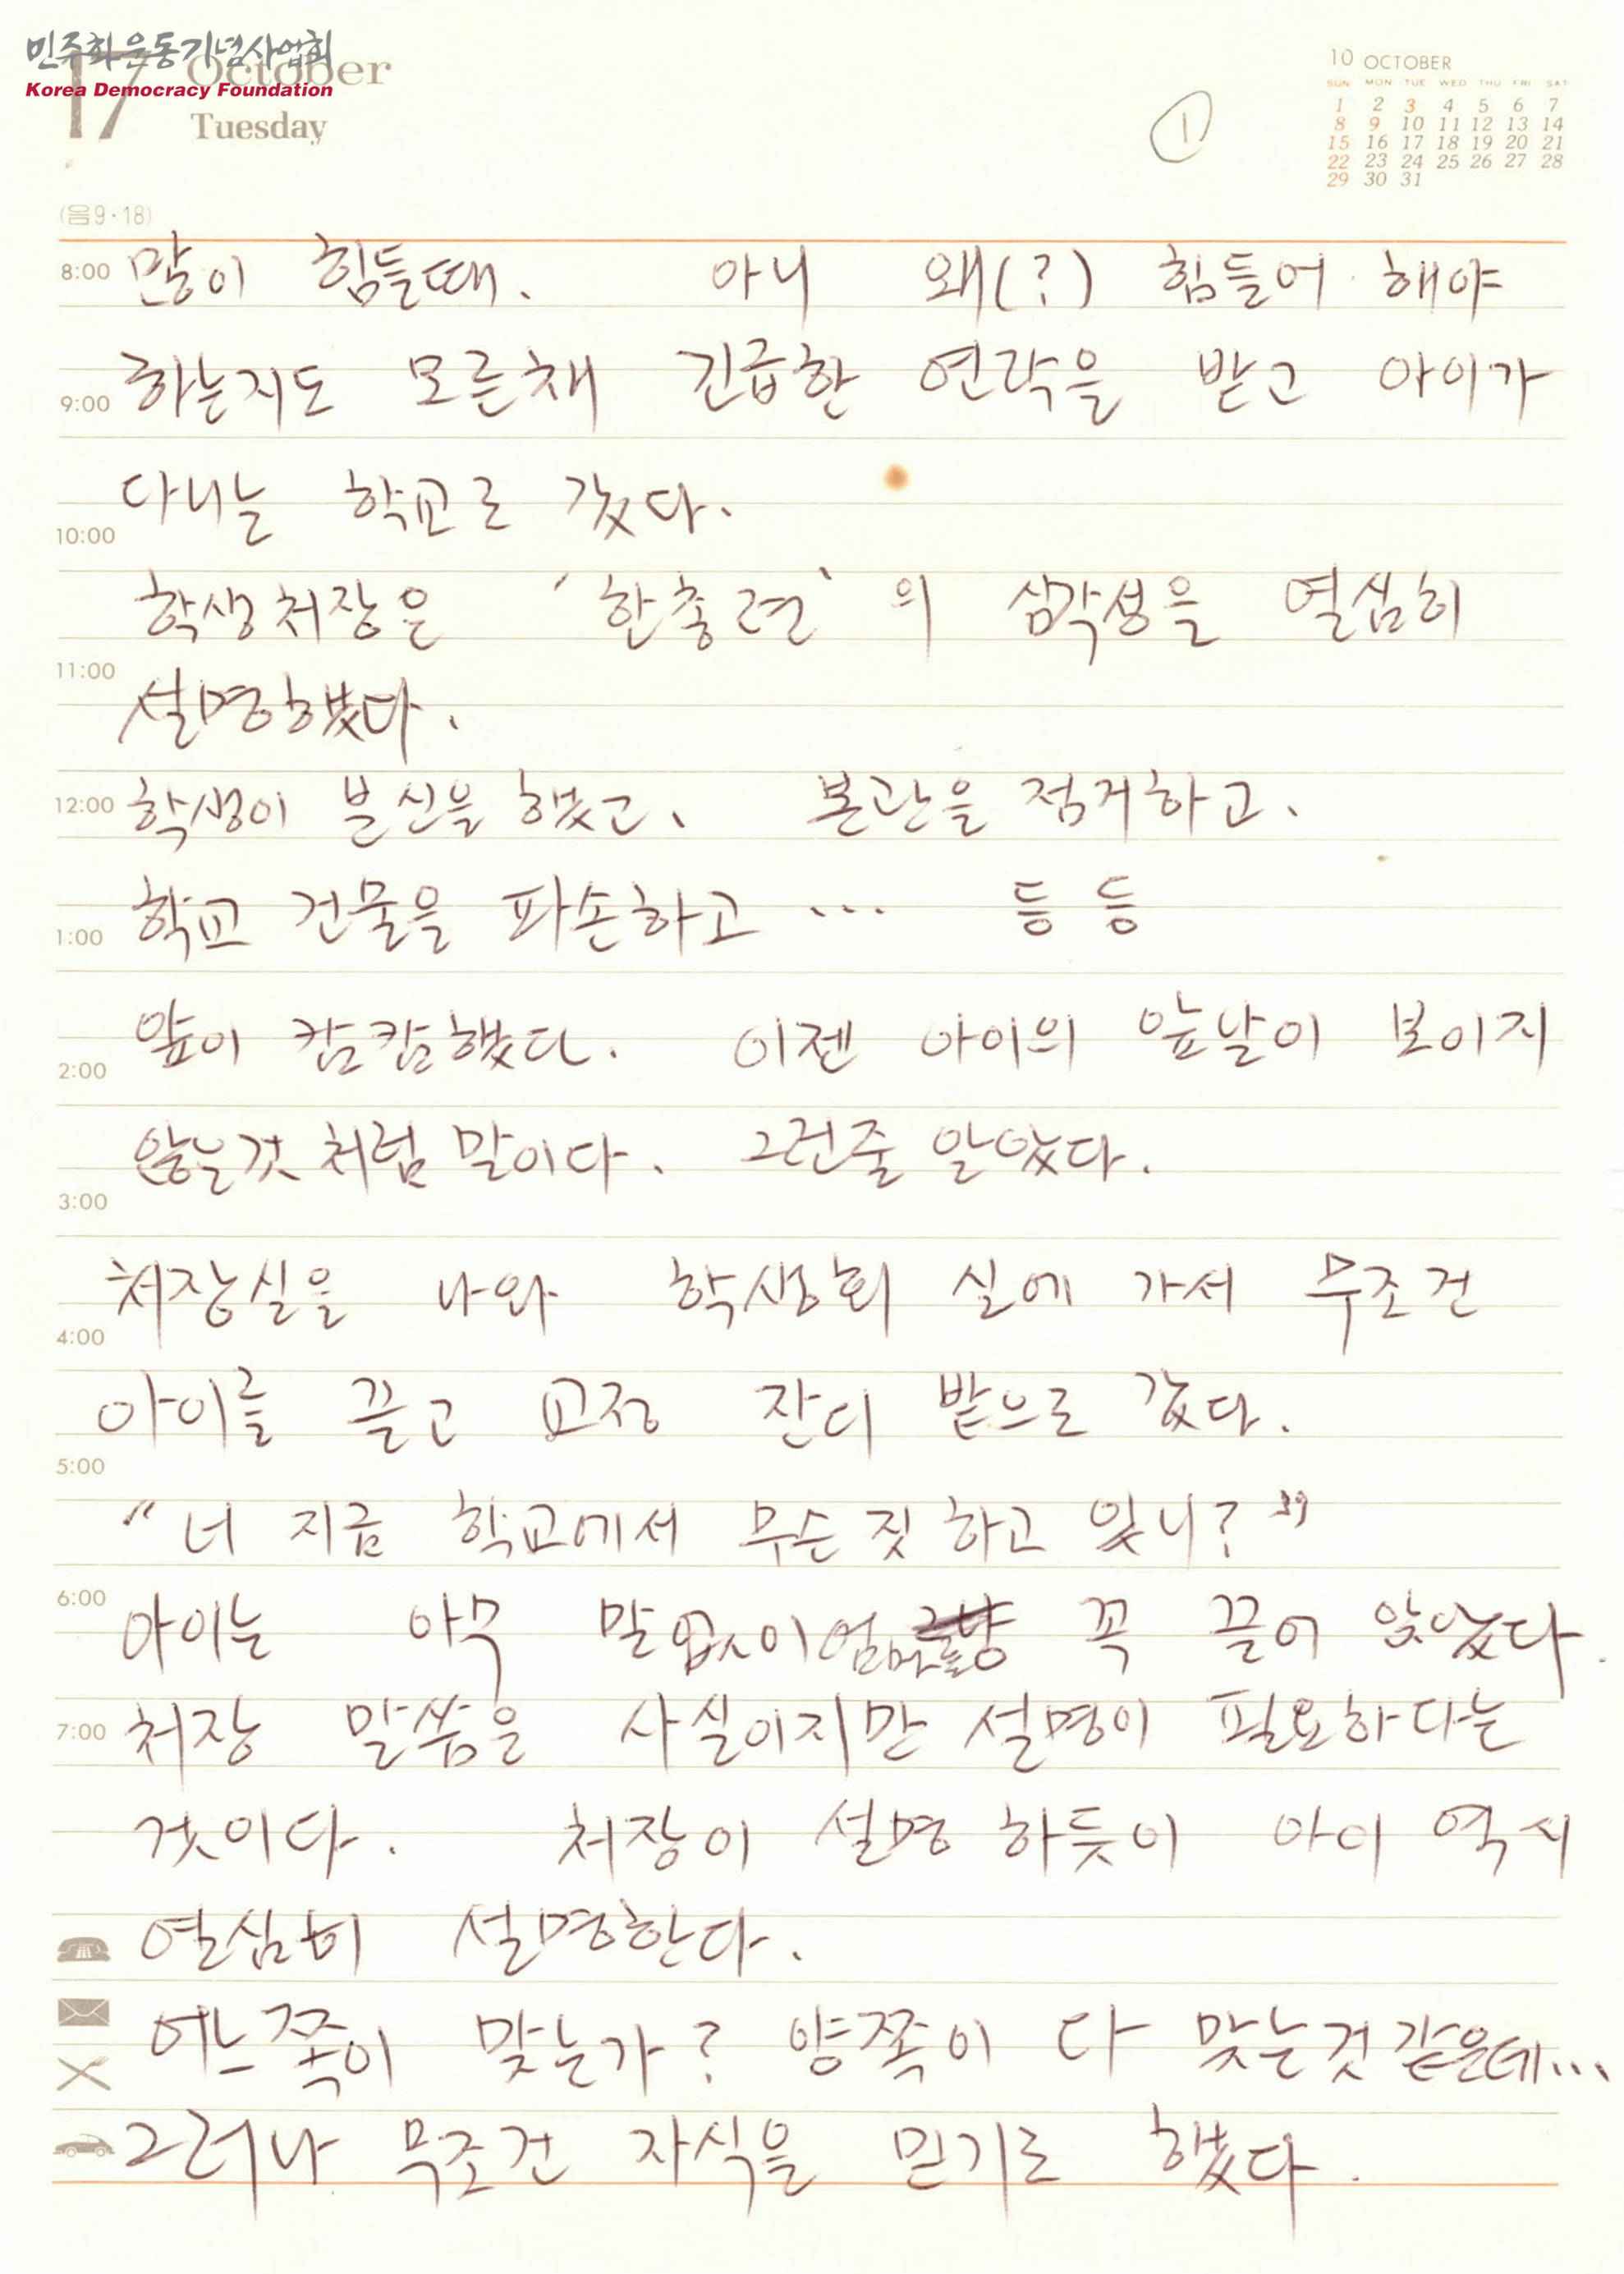 민주화운동기념사업회
Korea Democracy Foundation
17 October
Tuesday
①
10 OCTOBER
SUN MON TUE WED THU FRI SAT
1 2 3 4 5 6 7
8 9 10 11 12 13 14
15 16 17 18 19 20 21
22 23 24 25 26 27 28
29 30 31
(음9·18)
8:00 많이 힘들때. 아니 왜(?) 힘들어 해야
9:00 하는지도 모른채 긴급한 연락을 받고 아이가
다니는 학교로 갔다.
10:00
학생처장은 '한총련'의 삼각성을 열심히
11:00
설명했다.
12:00 학생이 분신을 했고, 본관을 점거하고,
1:00 학교 건물을 파손하고 ... 등등
2:00 앞이 캄캄했다. 이젠 아이의 앞날이 보이지
않는것 처럼 말이다. 그런줄 알았다.
3:00
처장실을 나와 학생회 실에 가서 무조건
4:00
아이를 끌고 교정 잔디 밭으로 갔다.
5:00
"너 지금 학교에서 무슨 짓 하고 있니?"
6:00 아이는 아무 말없이 엄마를 꼭 끌어 앉았다.
7:00 처장 말씀은 사실이지만 설명이 필요하다는
것이다. 처장이 설명 하듯이 아이 역시
열심히 설명한다.
어느쪽이 맞는가? 양쪽이 다 맞는것 같은데...
그러나 무조건 자식을 믿기로 했다.